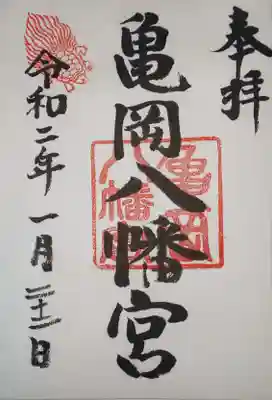 奉拝
亀岡八幡宮
亀岡八幡宮
令和二年一月二十二日